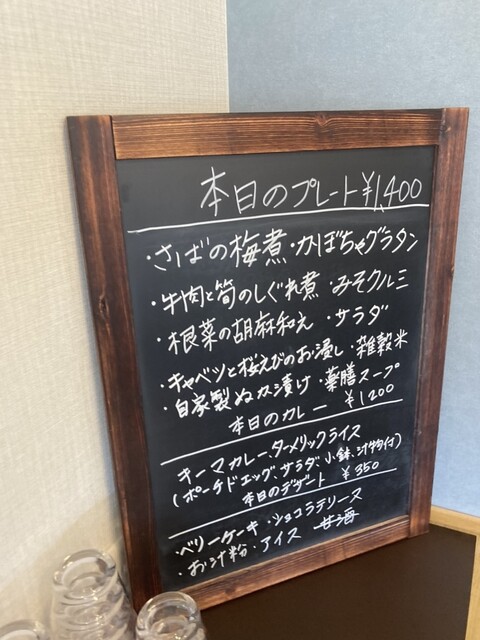 本日のプレート ¥1,400
・さばの梅煮・かぼちゃグラタン
・牛肉と筍のしぐれ煮・みそクルミ
・根菜の胡麻和え・サラダ
・キャベツと桜えびのお浸し・雑穀米
・自家製ぬか漬け・薬膳スープ
本日のカレー ¥1200
キーマカレー、ターメリックライス
(ポーチドエッグ、サラダ、小鉢、汁物付)
本日のデザート ¥350
・ベリーケーキ・ショコラテリーヌ
・お汁粉・アイス 甘酒